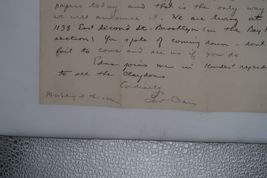 papers today and that is the only way
we will announce it. We are living at
1138 East Second St. Brooklyn (in the Bay
section) You spoke of coming down - dont
fail to come and see us if you do
Edna joins me in kindest regards
to see the Claydons
Cordially